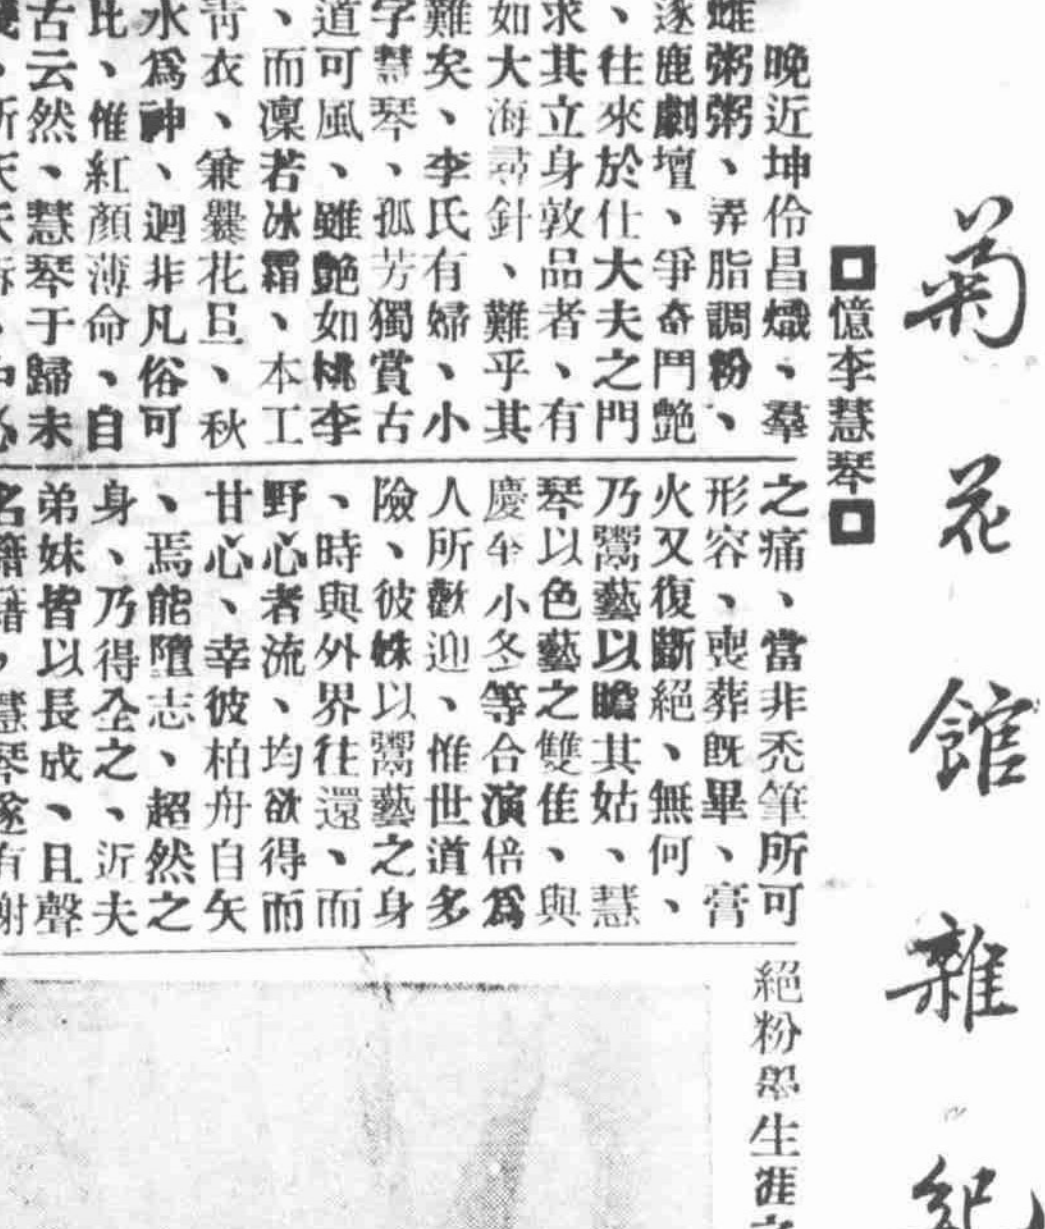 菊花館雜紀
憶李慧琴
晚近坤伶昌熾、羣
雌粥粥、弄脂調粉、
逐鹿劇壇、爭奇鬥艷
、往來於仕大夫之門
求其立身敦品者、有
如大海尋針、難乎其
難矣、李氏有婦、小
字慧琴、孤芳獨賞古
道可風、雖艷如桃李
、而凜若冰霜、本工
青衣、兼爨花旦、秋
水爲神、迥非凡俗可
比、惟紅顏薄命、自
古云然、慧琴于歸未
之痛、當非禿筆所可
形容、喪葬既畢、膏
火又復斷絕、無何、
乃鬻藝以瞻其姑、慧
琴以色藝之雙佳、與
慶奎小冬等合演倍爲
人所歡迎、惟世道多
險、彼姝以鬻藝之身
、時與外界往還、而
野心者流、均欲得而
甘心、幸彼柏舟自矢
、焉能墮志、超然之
身、乃得全之、近夫
弟妹皆以長成、且聲
名藉藉，慧琴遂有謝
絕粉墨生涯